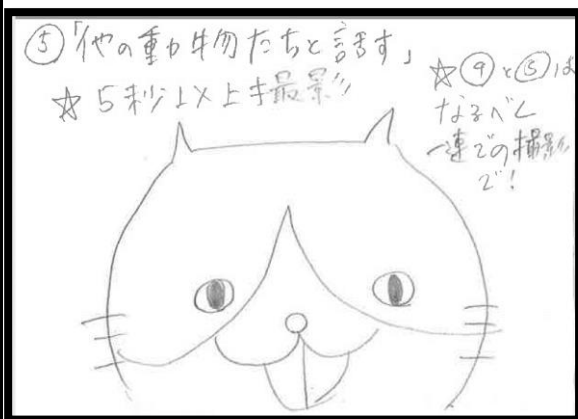 ⑤「他の動物たちと話す」
☆5秒以上撮影
☆④と⑤は
なるべく
一連での撮影
で!